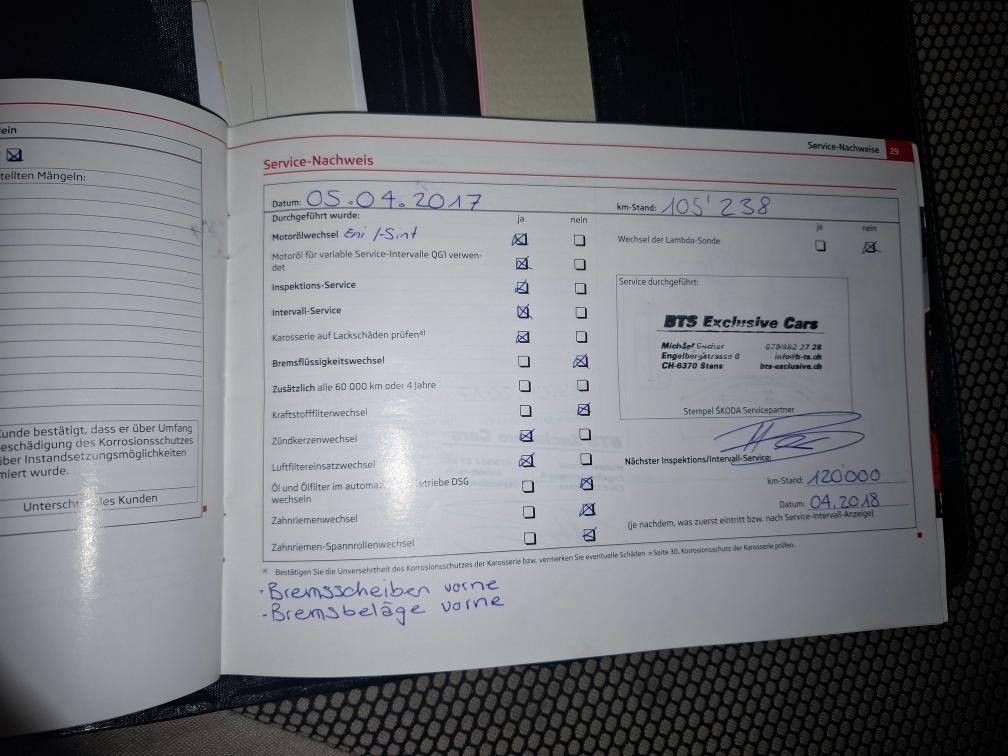 ein
tellten Mängeln:
Kunde bestätigt, dass er über Umfang
eschädigung des Korrosionsschutzes
ber Instandsetzungsmöglichkeiten
miert wurde.
Unterschr des Kunden
Service-Nachweise 29
Service-Nachweis
Datum: 05.04.2017 km-Stand: 105'238
Durchgeführt wurde: ja nein ja nein
Motorölwechsel Eni I-Sint
Wechsel der Lambda-Sonde
Motoröl für variable Service-Intervalle QG1 verwen-
det
Inspektions-Service
Intervall-Service
Karosserie auf Lackschäden prüfen a)
Bremsflüssigkeitswechsel
Zusätzlich alle 60 000 km oder 4 Jahre
Kraftstofffilterwechsel
Zündkerzenwechsel
Luftfiltereinsatzwechsel
Öl und Ölfilter im automa etriebe DSG
wechseln
Zahnriemenwechsel
Zahnriemen-Spannrollenwechsel
Service durchgeführt:
BTS Exclusive Cars
Michael 079/882 27 28
Engelbergstrasse 6 info@b-ts.ch
CH-6370 Stans bts-exclusive.ch
Stempel ŠKODA Servicepartner
Nächster Inspektions/Intervall-Service:
km-Stand: 120'000
Datum: 04.2018
(je nachdem, was zuerst eintritt bzw. nach Service-Intervall-Anzeige)
a) Bestätigen Sie die Unversehrtheit des Korrosionsschutzes der Karosserie bzw. vermerken Sie eventuelle Schäden ⇒ Seite 30, Korrosionsschutz der Karosserie prüfen.
- Bremsscheiben vorne
- Bremsbeläge vorne